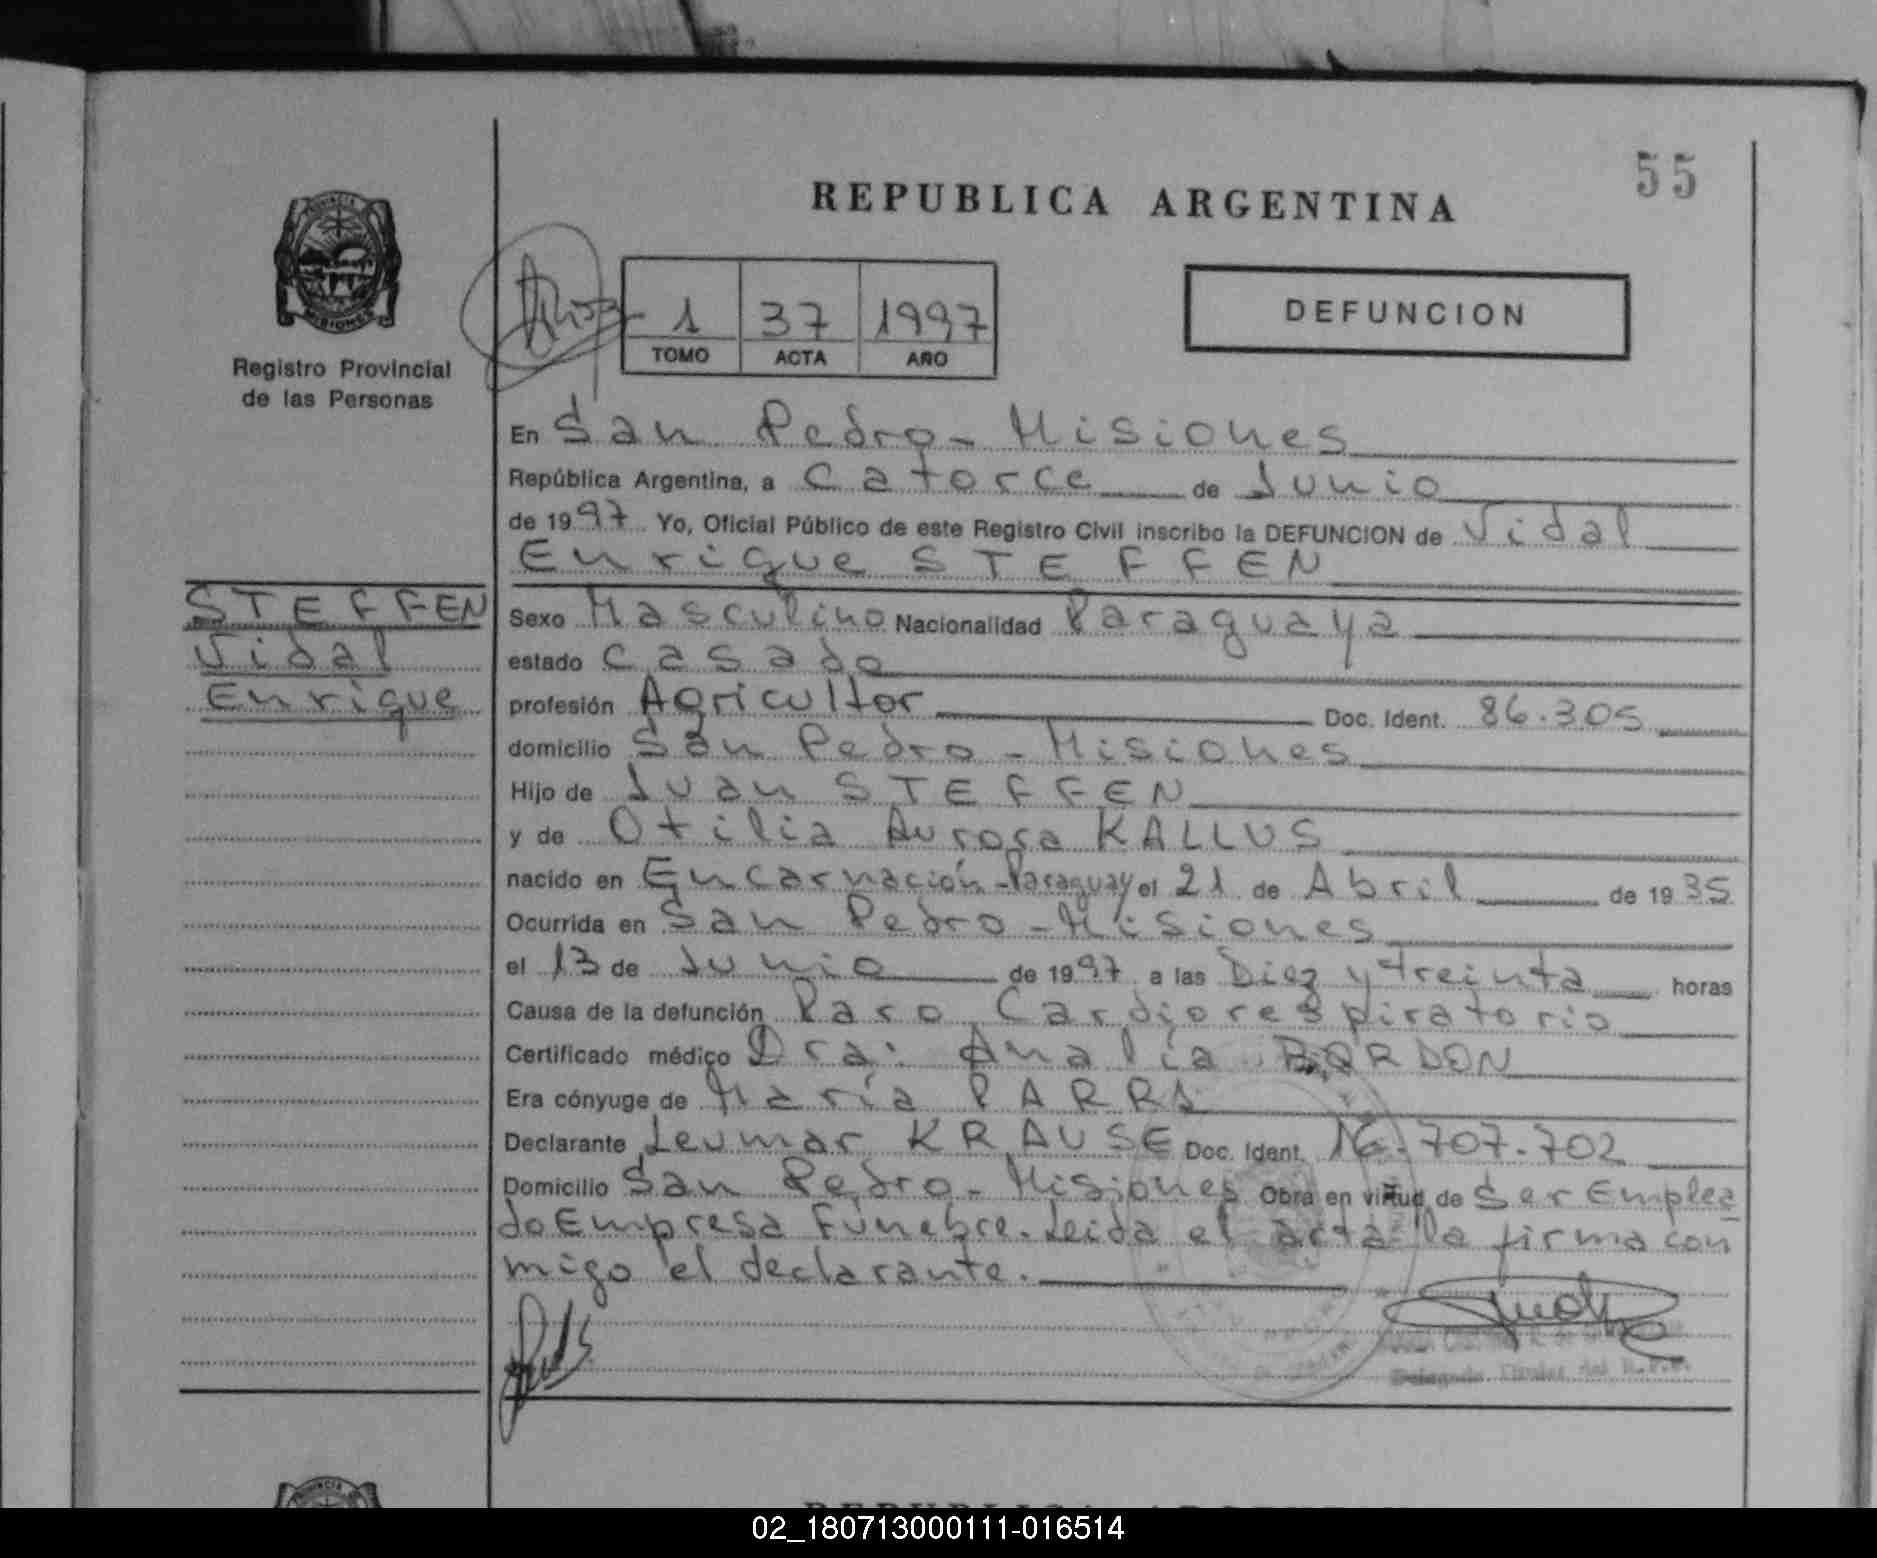 55
REPUBLICA ARGENTINA
PROVINCIA
MISIONES
Registro Provincial
de las Personas
1 37 1997
TOMO ACTA AÑO
DEFUNCION
En San Pedro - Misiones
República Argentina, a Catorce de Junio
de 1997 Yo, Oficial Público de este Registro Civil inscribo la DEFUNCION de Vidal
Enrique STEFFEN
STEFFEN
Vidal
Enrique
Sexo Masculino Nacionalidad Paraguaya
estado Casado
profesión Agricultor Doc. Ident. 86.305
domicilio San Pedro - Misiones
Hijo de Juan STEFFEN
y de Otilia Aurora KALLUS
nacido en Encarnación - Paraguay el 21 de Abril de 1935
Ocurrida en San Pedro - Misiones
el 13 de Junio de 1997 a las Diez y treinta horas
Causa de la defunción Paro Cardiorespiratorio
Certificado médico Dra: Analía BORDON
Era cónyuge de María PARRA
Declarante Leumar KRAUSE Doc. Ident. 16.707.702
Domicilio San Pedro - Misiones Obra en virtud de Ser Emplea
do Empresa Fúnebre. Leida el acta la firma con
migo el declarante.
Titular del R.P.P.
PROVINCIA
REPUBLICA ARGENTINA
02_180713000111-016514